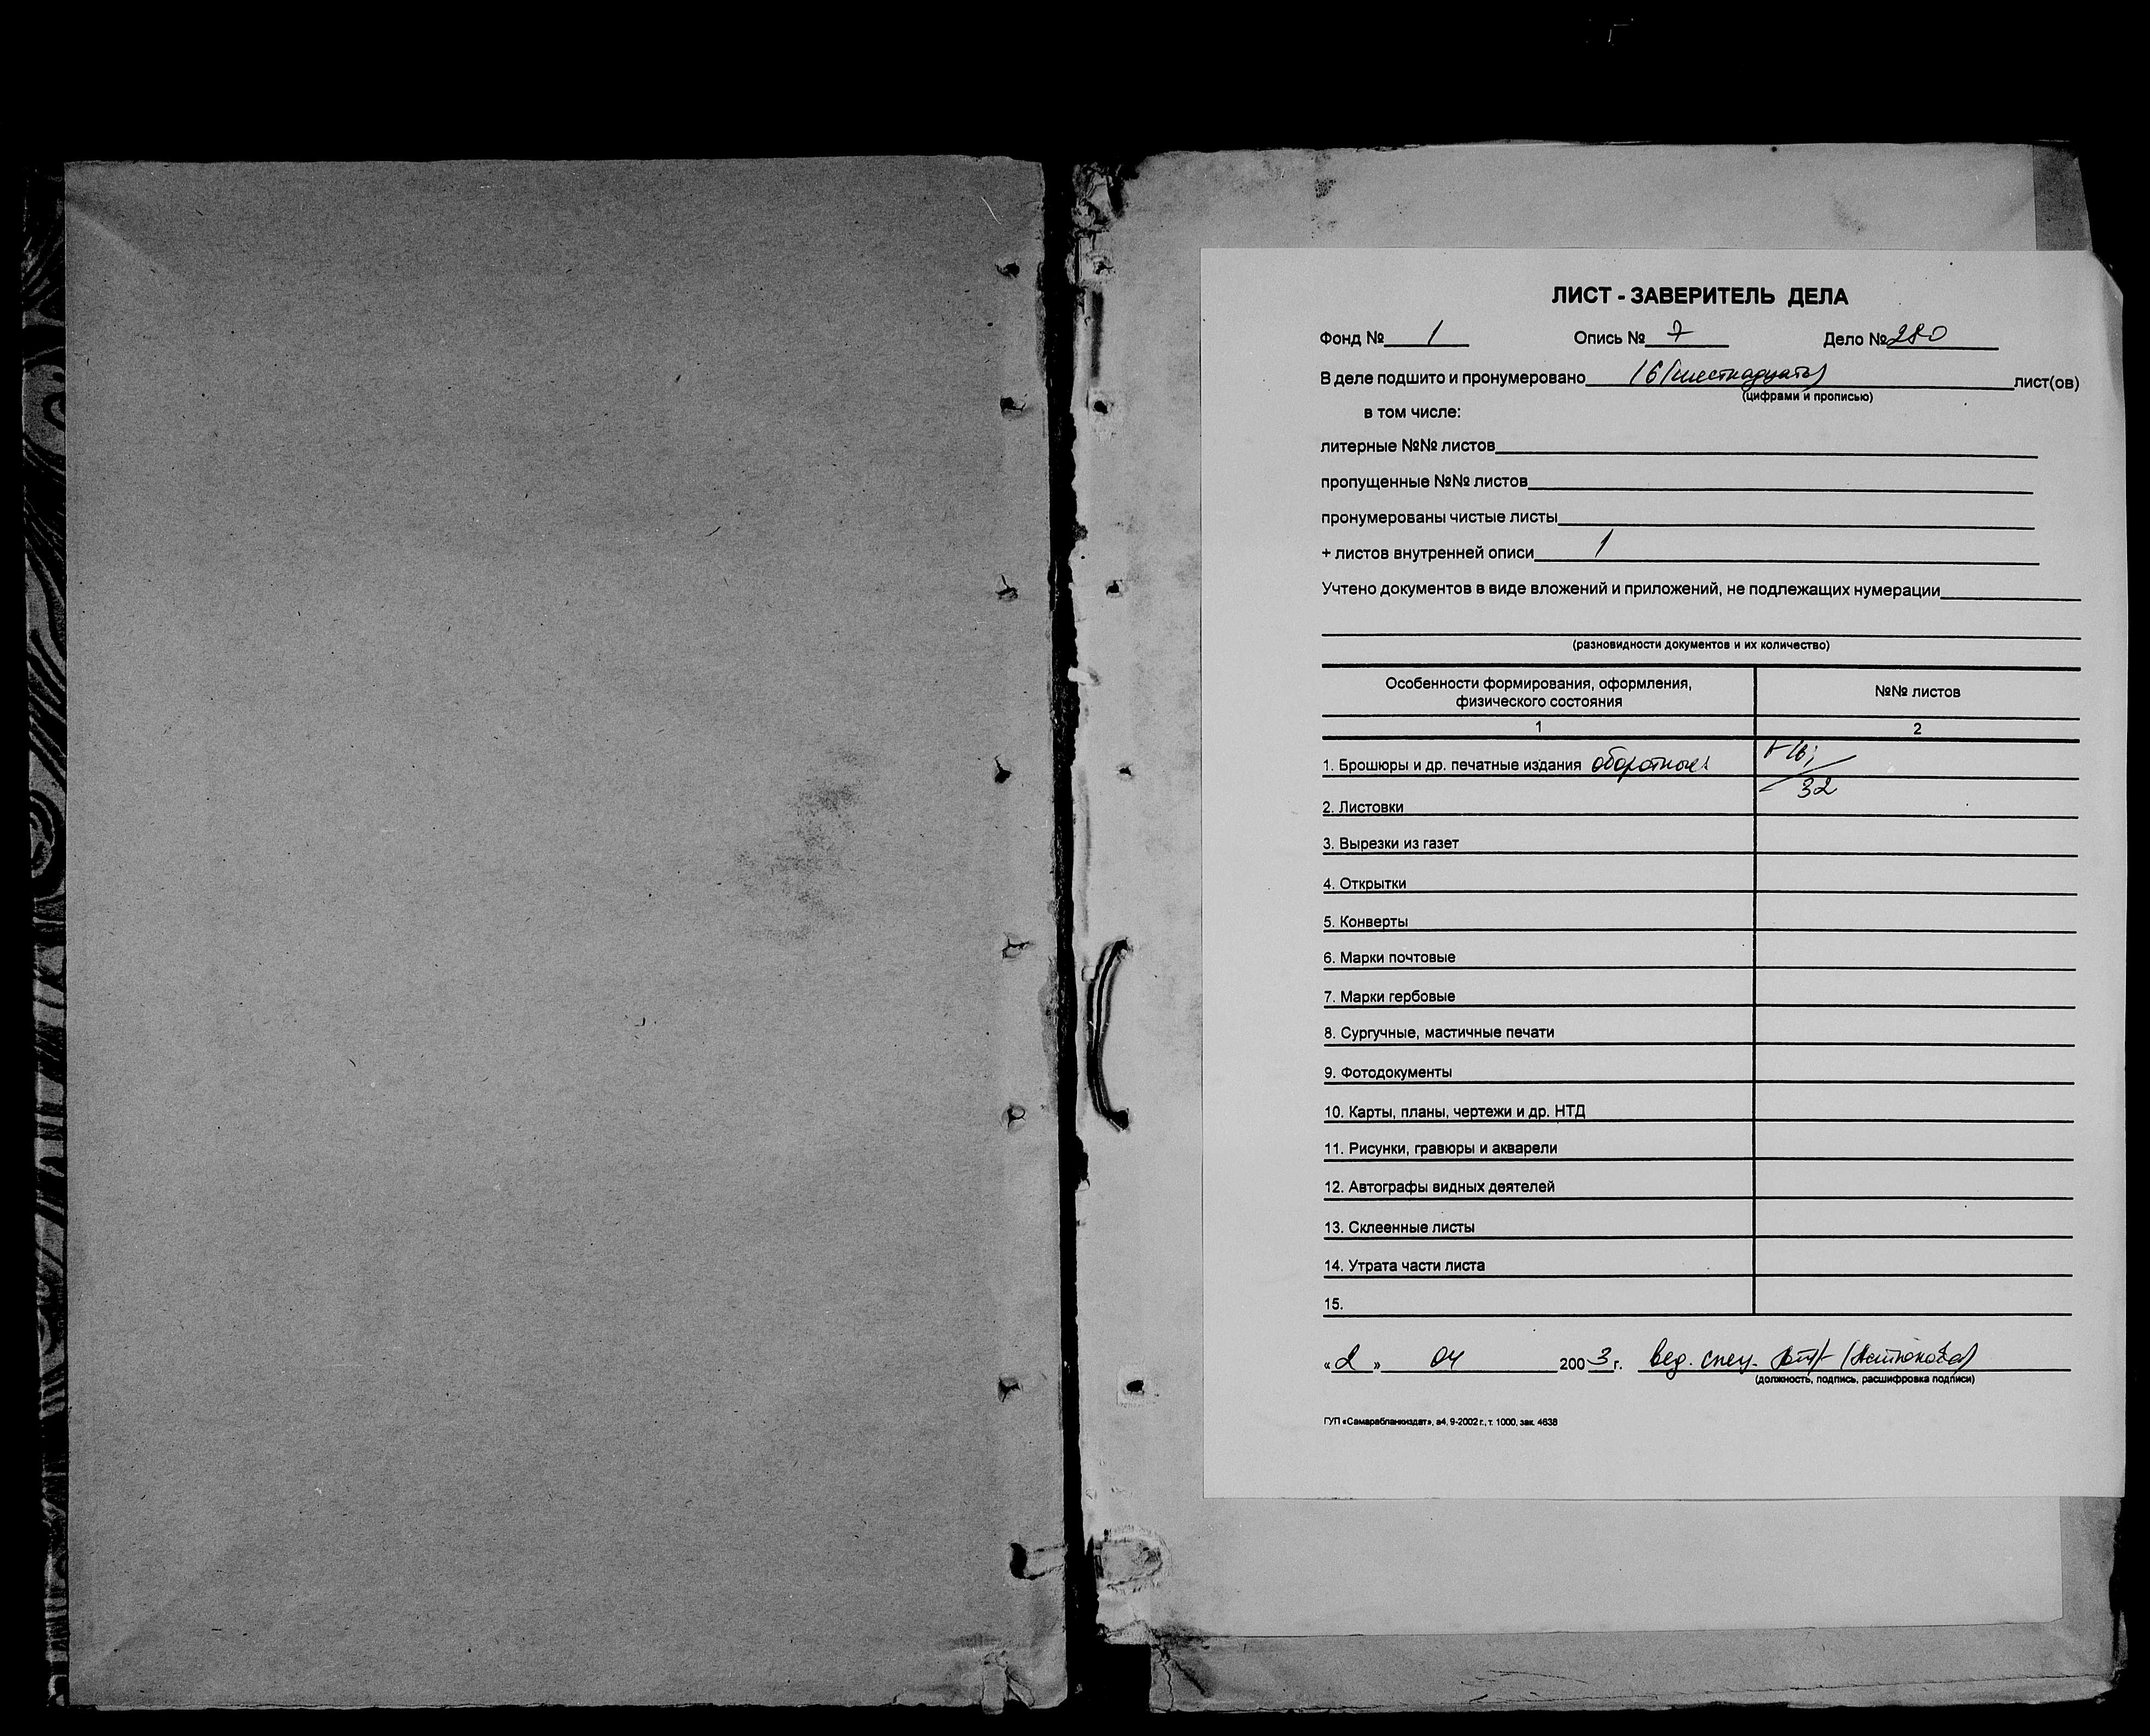 ЛИСТ - ЗАВЕРИТЕЛЬ ДЕЛА
Фонд № 1 Опись № 7 Дело № 280
В деле подшито и пронумеровано 16 (шестнадцать) лист(ов)
(цифрами и прописью)
в том числе:
литерные №№ листов
пропущенные №№ листов
пронумерованы чистые листы
+ листов внутренней описи 1
Учтено документов в виде вложений и приложений, не подлежащих нумерации
(разновидности документов и их количество)
Особенности формирования, оформления, №№ листов
физического состояния
1 2
1. Брошюры и др. печатные издания оборотные
32
2. Листовки
3. Вырезки из газет
4. Открытки
5. Конверты
6. Марки почтовые
7. Марки гербовые
8. Сургучные, мастичные печати
9. Фотодокументы
10. Карты, планы, чертежи и др. НТД
11. Рисунки, гравюры и акварели
12. Автографы видных деятелей
13. Склеенные листы
14. Утрата части листа
15.
« 2 » 04 2003 г. вед. спец.
(должность, подпись, расшифровка подписи)
ГУП «Самарабланкиздат», а4, 9-2002 г., т. 1000, зак. 4638